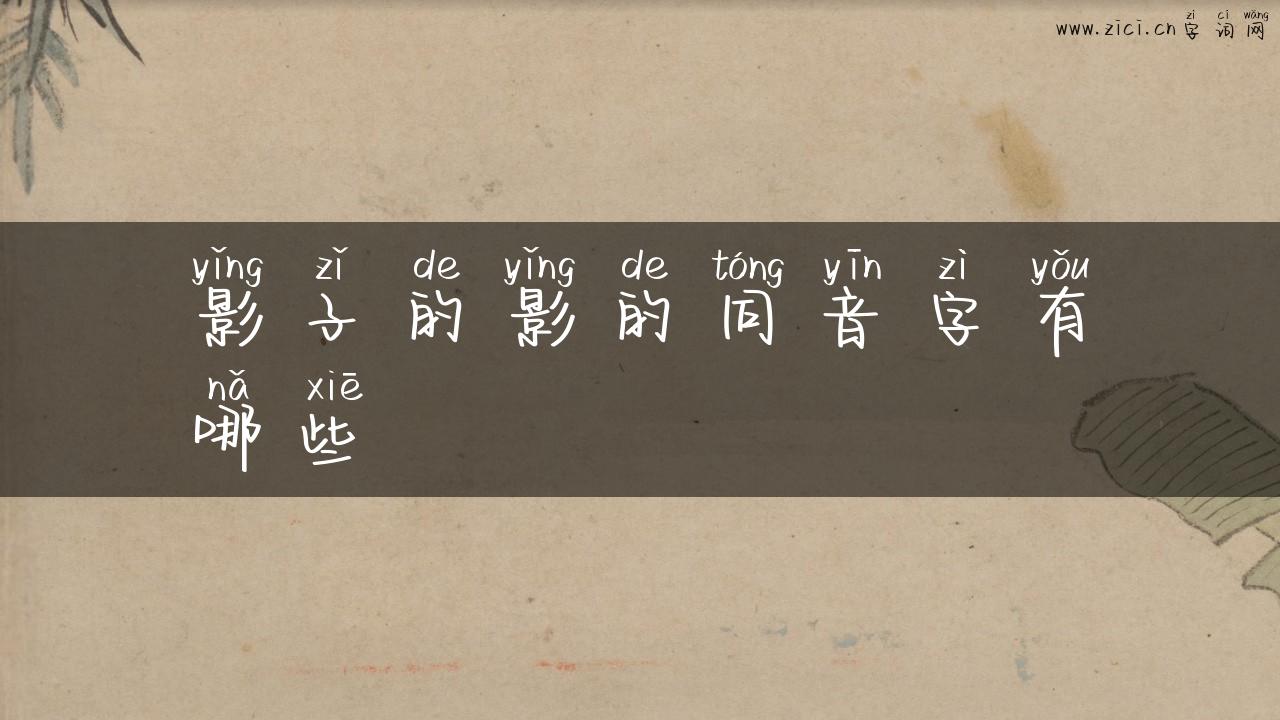 zì cí wǎng
www.zici.cn 字词网
yǐng zǐ de yǐng de tóng yīn zì yǒu
影子的影的同音字有
nǎ xiē
哪些